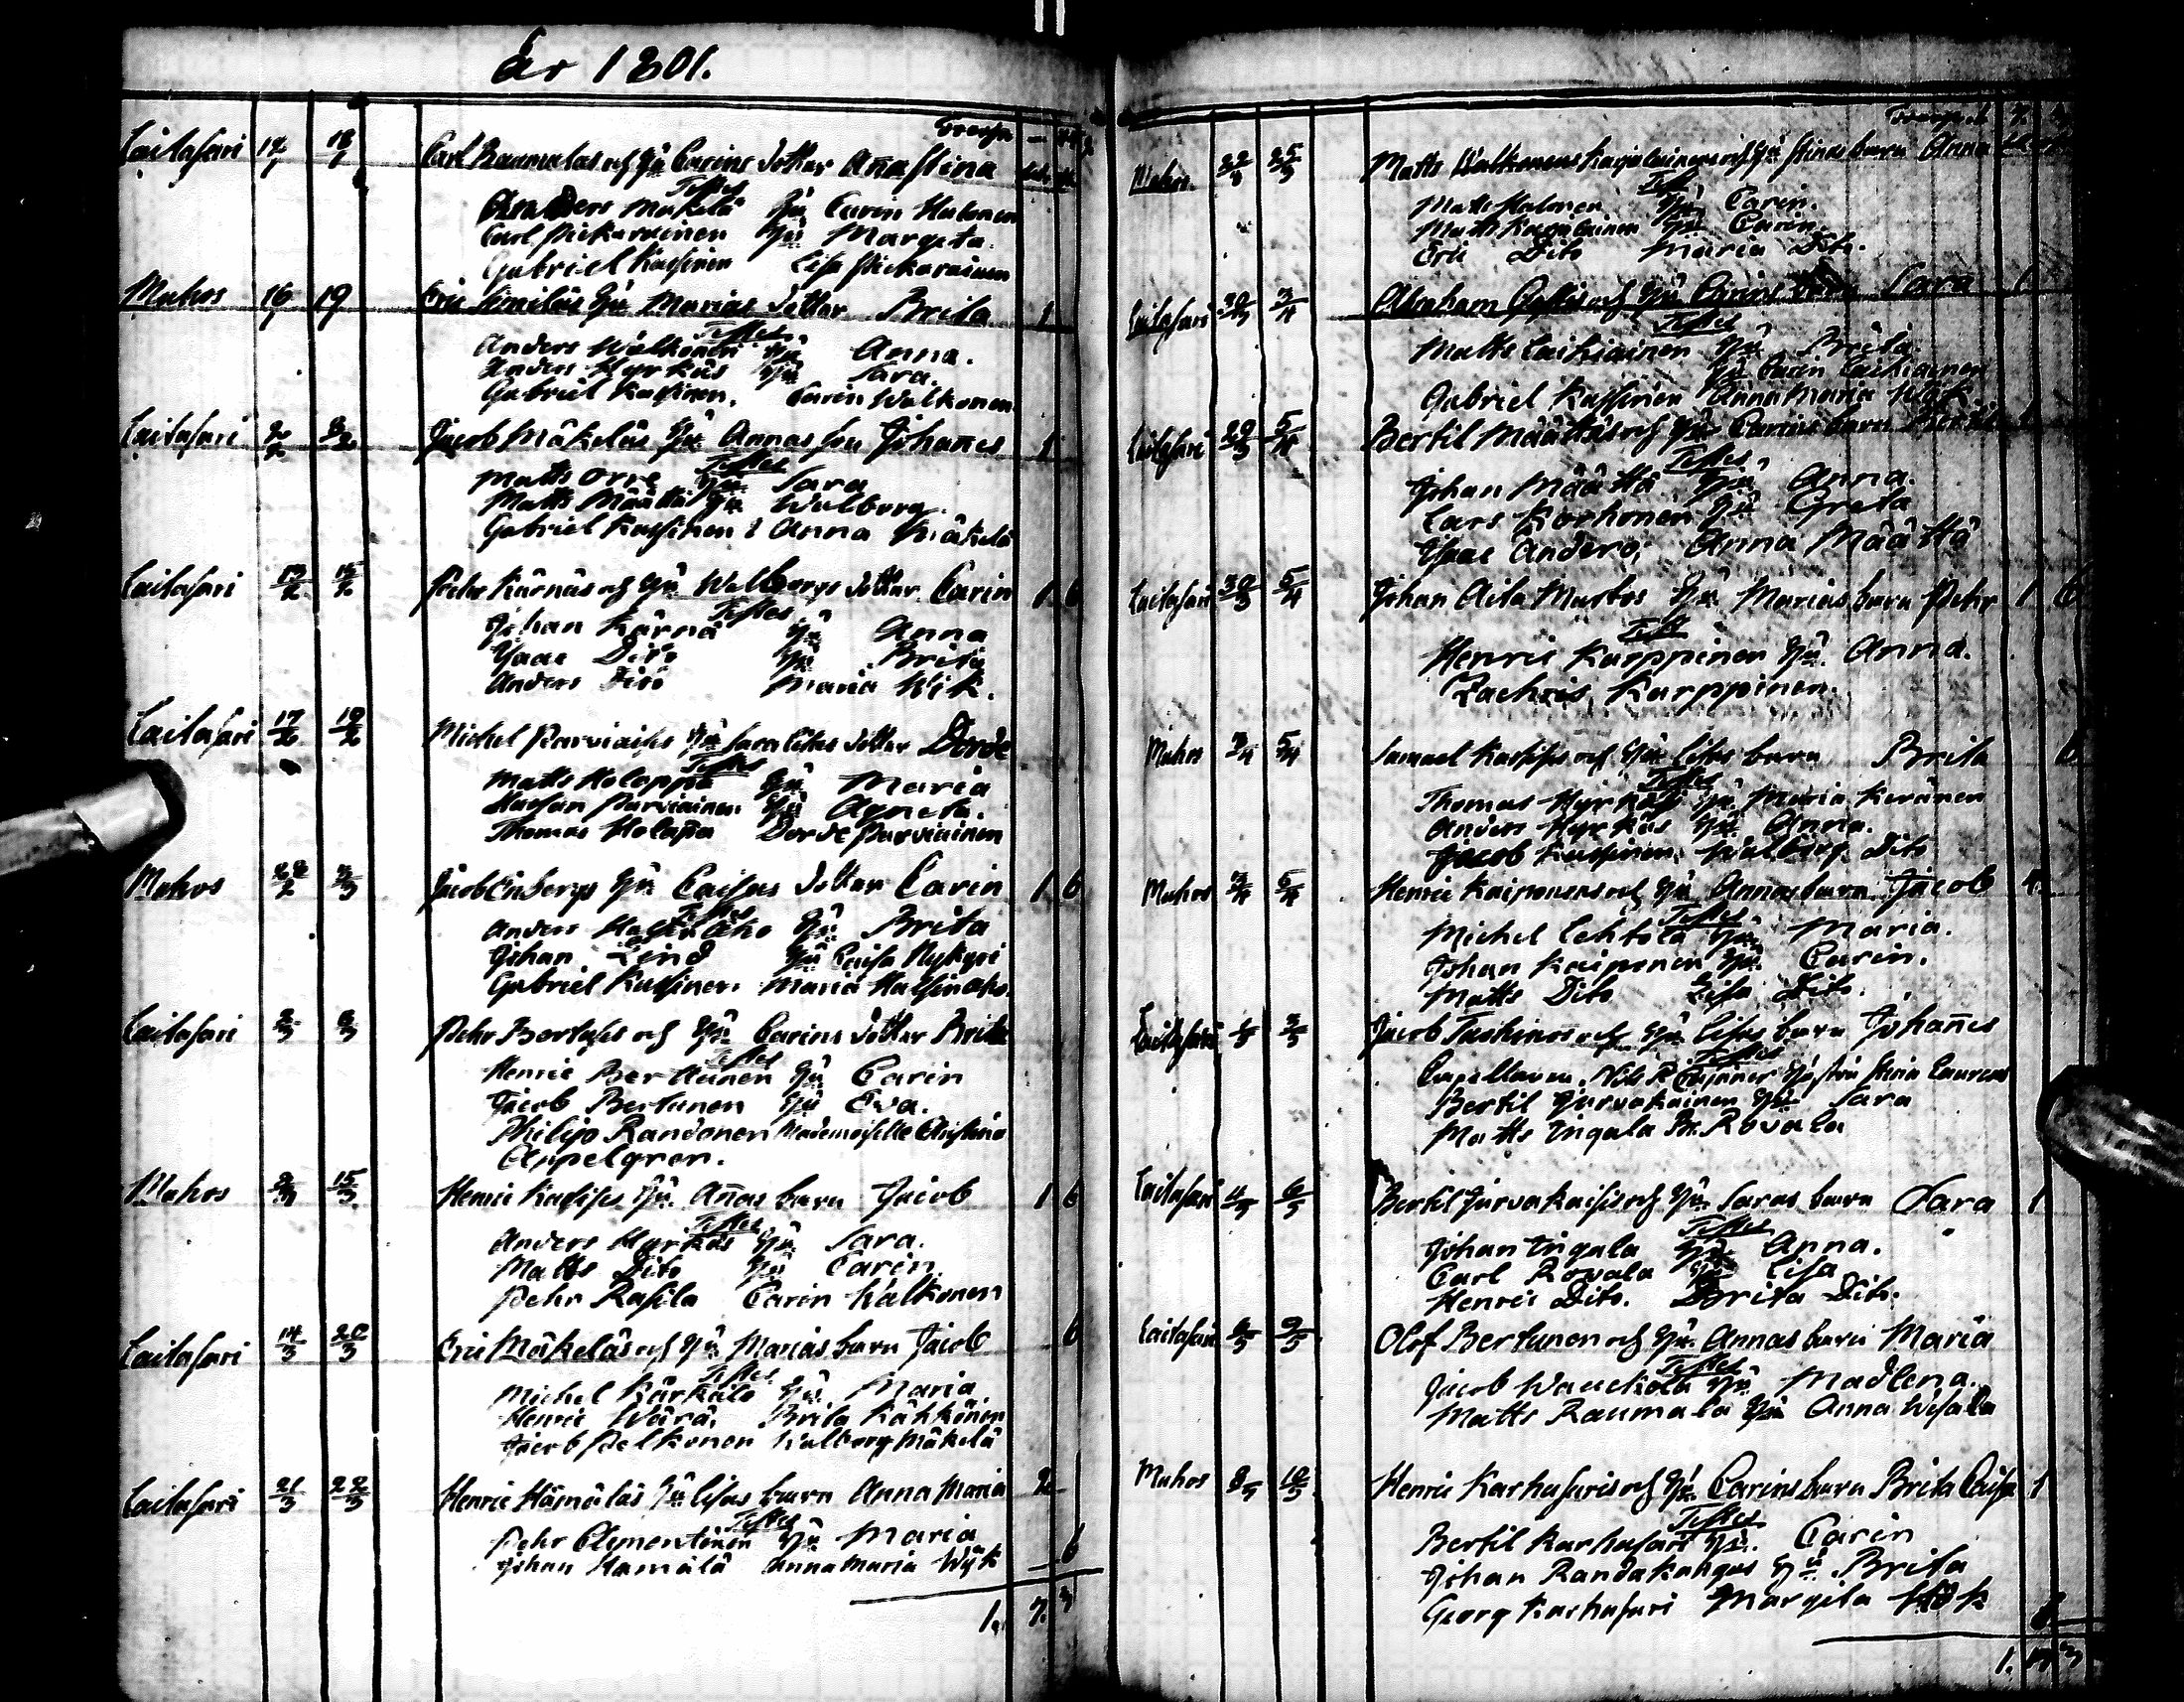 År 1801.
Transp.
Laitasari 17/1 18/1 Carl Raumalas och Hu Carins dotter Anna Stina
Testes
Anders Mäkelä Hu Carin Halonen
Carl Pickarainen Hu Margeta.
Gabriel Kassinen Lisa Pickarainen
Muhos 16 19 Eric Similäs Hu Marias dotter Brita 1
Testes
Anders Walkonen Hu Anna.
Anders Hyrkäs Hu Sara.
Gabriel Kassinen. Carin Walkonen
Laitasari 2/2 8/2 Jacob Mäkeläs Hu Annas son Johanes 1
Testes
Matts Orre Hu Sara
Matts Määttä Hu Walborg.
Gabriel Kassinen Anna Mäkelä
Laitasari 13/2 15/2 Pehr Kärnäs och Hu Walborgs dotter Carin 1 6
Testes
Johan Kärnä Hu Anna
Isaac Dito Hu Brita
Anders Dito Maria Wik.
Laitasari 17/2 19/2 Michel Parviaises Hu Sara Lisas dotter Dorde
Testes
Matts Holappa Hu Maria
Staffan Parviainen Hu Agneta.
Thomas Holapa Dorde Parviainen
Muhos 28/2 2/3 Jacob Enbergs Hu Caisas dotter Carin 1 6
Testes
Anders Hassinaho Hu Brita
Johan Lind Hu Caisa Nykyri
Gabriel Kassinen Maria Hassinaho.
Laitasari 2/3 8/3 Pehr Bertuses och Hu Carins dotter Brita
Testes
Henric Bertunen Hu Carin
Jacob Bertunen Hu Eva.
Philip Randonen Mademoiselle Christina
Appelgren.
Muhos 9/3 15/3 Henric Kassises Hu Annas barn Jacob 1 6
Testes
Anders Hyrkäs Hu Sara.
Matts Dito Hu Carin.
Pehr Rasila Carin Walkonen
Laitasari 14/3 20/3 Eric Mäkeläs och Hu Marias barn Jacob 6
Testes
Michel Kärkälä Hu Maria
Henric Wärä. Brita Kähkönen
Jacob Pelkonen Walborg Mäkelä
Laitasari 21/3 22/3 Henric Hämäläs Hu Lisas barn Anna Maria 2
Testes
Pehr Clementinen Hu Maria
Johan Hamälä Anna Maria Wyk 6
1. 7. 3
Transp.
Muhos 22/3 25/3 Matts Walkonens Hu Stinas barn Anna
Test
Matts Halonen Hu Carin.
Matts Hu Carin.
Eric Dito Maria Dito.
Laitasari 30/3 3/4 Abraham och Hu Carins barn Sara 1
Testes
Matts Laikiainen Hu Brita
Hu Carin Laikiainen
Gabriel Kassinen Anna Maria Wök
Laitasari 29/3 5/4 Bertil Määttäs och Hu Carins barn
Testes
Johan Määttä Hu Anna.
Lars Korhonen Hu Greta
Isaac Anders. Anna Määttä
Laitasari 30/3 5/4 Johan Aita Mustos Hu Marias barn Pehr 1 6
Test
Henric Karppinen Hu Anna.
Zachris Karppinen.
Muhos 3/4 5/4 Samuel Kassises och Hu Lisas barn Brita 6
Testes
Thomas Hyrkäs Hu Maria Keränen
Anders Hyrkäs Hu Anna.
Jacob Kassinen Walborg Dito
Muhos 3/4 5/4 Henric Kaiponens och Hu Annas barn Jacob
Testes
Michel Lehtola Hu Maria.
Johan Kaiponen Hu Carin.
Matts Dito Lisa Dito.
Laitasari 3/5 Jacob Taskinens och Hu Lisas barn Johanes
Testes
Capellanen Nils Hustru Stina Laurens
Bertil Jurvakainen Hu Sara
Matts Ingala Br. Rovala
Laitasari 4/5 6/5 Bertil Jurvakaises och Hu Saras barn Sara 1
Testes
Johan Ingala Hu Anna.
Carl Rovala Hu Lisa
Henric Dito. Brita Dito.
Laitasari 9/5 Olof Bertunen och Hu Annas barn Maria
Testes
Jacob Wauckola Hu Madlena.
Matts Raumala Hu Anna Wesala
Muhos 8/5 10/5 Henric Karhusaris och Hu Carins barn Brita Caisa 1
Testes
Bertil Karhusari Hu. Carin
Johan Randakangas Hu Brita
Georg Karhusari Margeta Hök